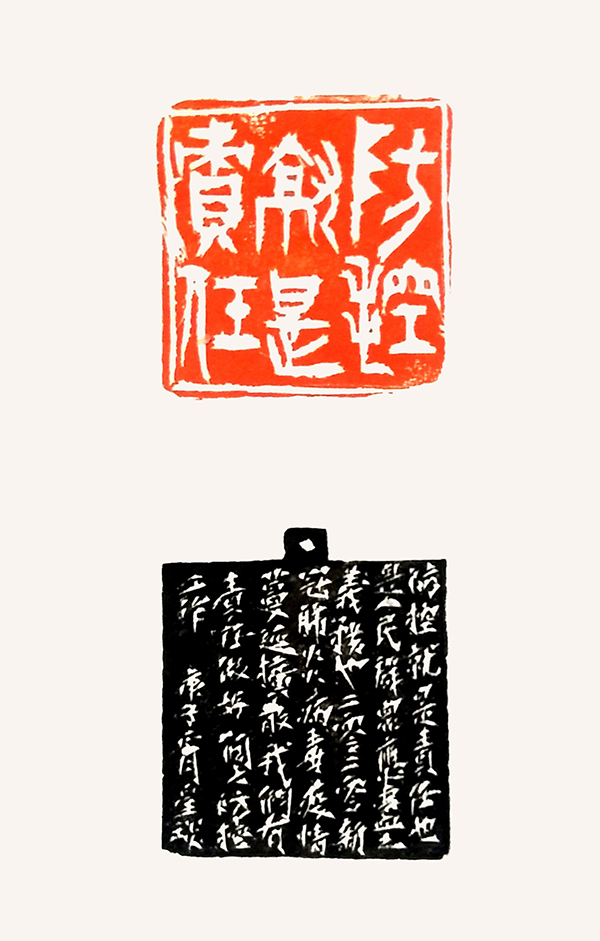 防控
就是
責任
防控就是責任也
是人民群眾應盡之
義務也二零二零新
冠肺炎病毒疫情
蔓延擴散我們有
責任做好個人防控
工作 庚子